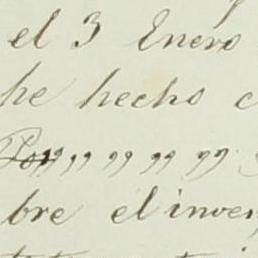 el 3 Enero
he hecho
Por ,, ,, ,, ,,
bre el inven